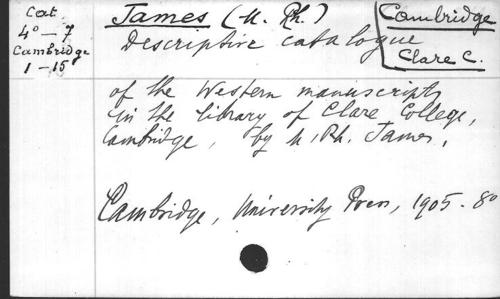 Cat.
4° — 7
Cambridge
1 — 15
James (M. Rh.)
Cambridge
Clare C.
Descriptive catalogue
of the Western manuscripts
in the library of Clare College,
Cambridge, by M. Rh. James.
Cambridge, University Press, 1905. 8°